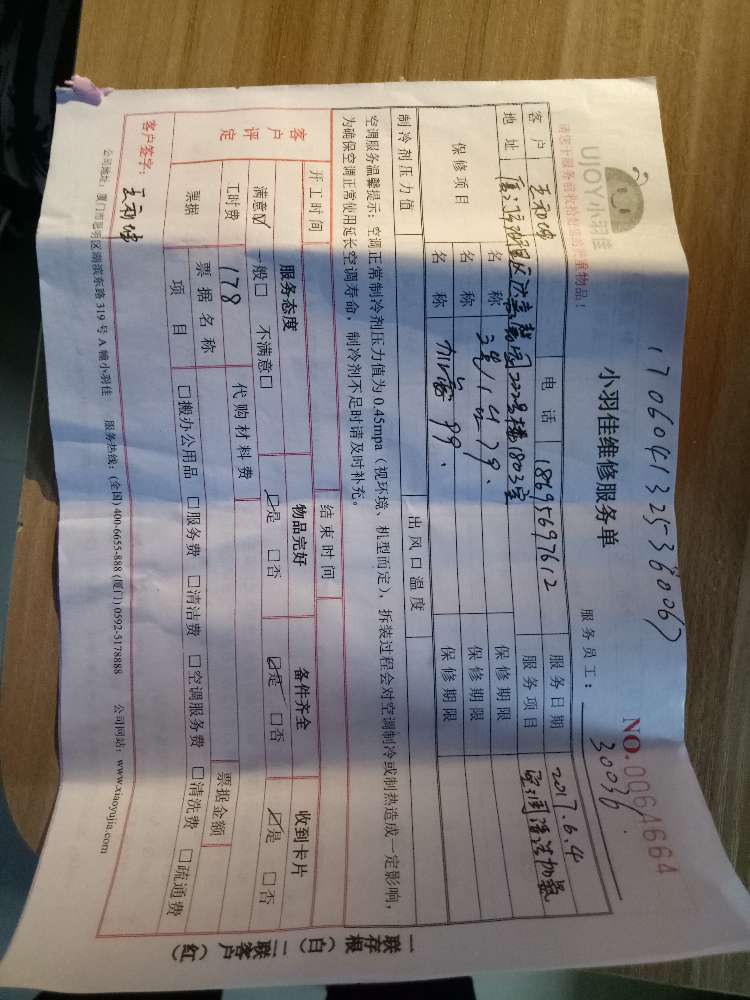 17060413253 60067
UJOY小羽佳
小羽佳维修服务单
NO.0064664
请您于服务前收拾好您的贵重物品！
服务员工： 30036
客户 王初坤 电话 18695697612 服务日期 2017.6.4
地址 服务项目
保修项目 名称 保修期限
名称 保修期限
名称 加雪 99. 保修期限
制冷剂压力值 出风口温度
空调服务温馨提示：空调正常制冷剂压力值为0.45mpa（视环境、机型而定），拆装过程会对空调制冷或制热造成一定影响，
为确保空调正常使用延长空调寿命，制冷剂不足时请及时补充。
开工时间 结束时间
客户评定 服务态度 物品完好 备件齐全 收到卡片
满意☑ 一般□ 不满意□ ☑是 □否 ☑是 □否 ☑是 □否
工时费 178 代购材料费
票据 票据名称 票据金额
项目 □搬办公用品 □服务费 □清洁费 □空调服务费 □清洗费 □疏通费
客户签字： 王初坤
公司地址：厦门市思明区湖滨东路319号A幢小羽佳 服务热线：(全国) 400-6655-888 (厦门) 0592-5178888 公司网站：www.xiaoyujia.com
一联存根（白）二联客户（红）